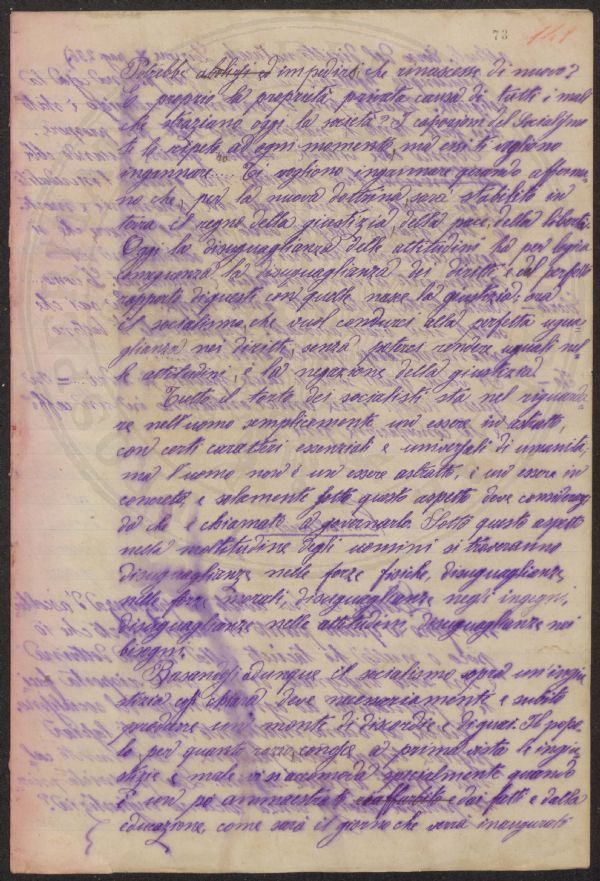 73 141
Potrebbe abolirsi ed impedirsi che rinascesse di nuovo?
È proprio la proprietà privata causa di tutti i mali
che straziano oggi la società? I caporioni del Socialismo
te lo ripeto ad ogni momento, ma essi ti vogliono
ingannare.... Ti vogliono ingannare quando afferma-
no che, per la nuova dottrina, sarà stabilito in
terra il regno della giustizia, della pace, della libertà.
Oggi la disuguaglianza delle attitudini ha per logica
conseguenza la disuguaglianza dei diritti, e dal perfetto
rapporto di questi con quelle nasce la giustizia; ora
il socialismo, che vuol condurci alla perfetta ugua-
glianza nei diritti, senza poterci rendere uguali nel-
le attitudini, è la negazione della giustizia.
Tutto il torto dei socialisti sta nel riguarda-
re nell'uomo semplicemente un essere in astratto,
con certi caratteri essenziali e universali di umanità;
ma l'uomo non è un essere astratto, è un essere in
concreto, e solamente sotto questo aspetto deve considerarlo
chi è chiamato a governarlo. Sotto questo aspetto
nella moltitudine degli uomini si troveranno
disuguaglianze nelle forze fisiche, disuguaglianze
nelle forze morali, disuguaglianze negli ingegni,
disuguaglianze nelle attitudini, disuguaglianze nei
bisogni.
Basandosi adunque il socialismo sopra un'ingiu-
stizia così chiara deve necessariamente e subito
produrre un monte di discordie e di guai. Il popo-
lo per quanto rozzo a prima vista le ingiu-
stizie e male vi si accomoda specialmente quando
è un po' ammaestrato dai fatti e dalla
educazione, come sarà il giorno che verrà inaugurato